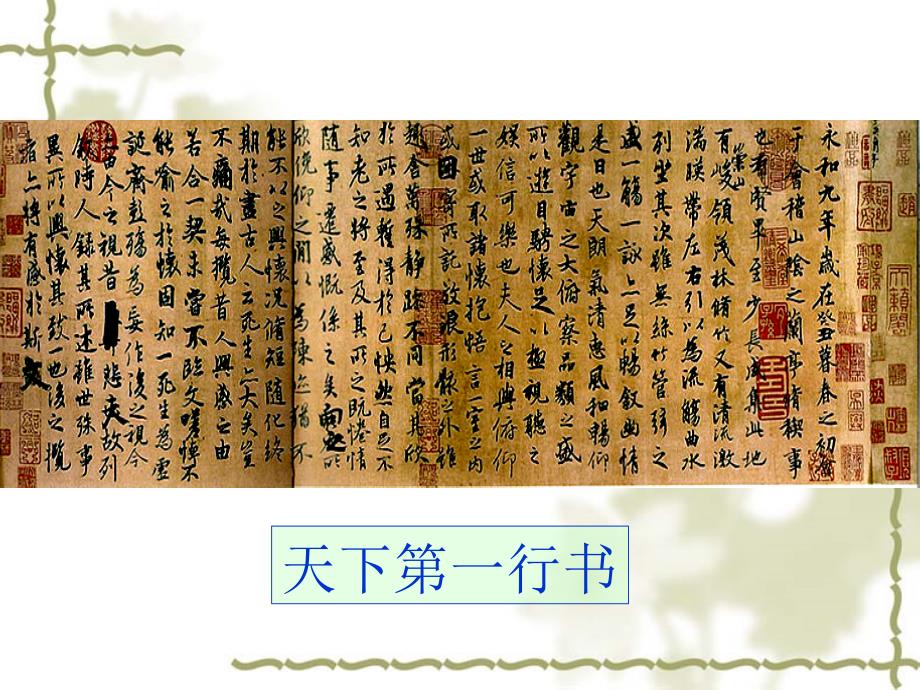 永和九年歲在癸丑暮春之初會
于會稽山陰之蘭亭脩稧事
也羣賢畢至少長咸集此地
有崇山峻領茂林脩竹又有清流激
湍暎帶左右引以為流觴曲水
列坐其次雖無絲竹管弦之
盛一觴一詠亦足以暢敘幽情
是日也天朗氣清惠風和暢仰
觀宇宙之大俯察品類之盛
所以遊目騁懷足以極視聽之
娛信可樂也夫人之相與俯仰
一世或取諸懷抱悟言一室之內
或因寄所託放浪形骸之外雖
趣舍萬殊靜躁不同當其欣
於所遇蹔得於己怏然自足不
知老之將至及其所之既惓情
隨事遷感慨係之矣向之所
欣俛仰之閒以為陳迹猶不
能不以之興懷況脩短隨化終
期於盡古人云死生亦大矣豈
不痛哉每攬昔人興感之由
若合一契未嘗不臨文嗟悼不
能喻之於懷固知一死生為虛
誕齊彭殤為妄作後之視今
亦由今之視昔悲夫故列
敘時人錄其所述雖世殊事
異所以興懷其致一也後之攬
者亦將有感於斯文
天下第一行书